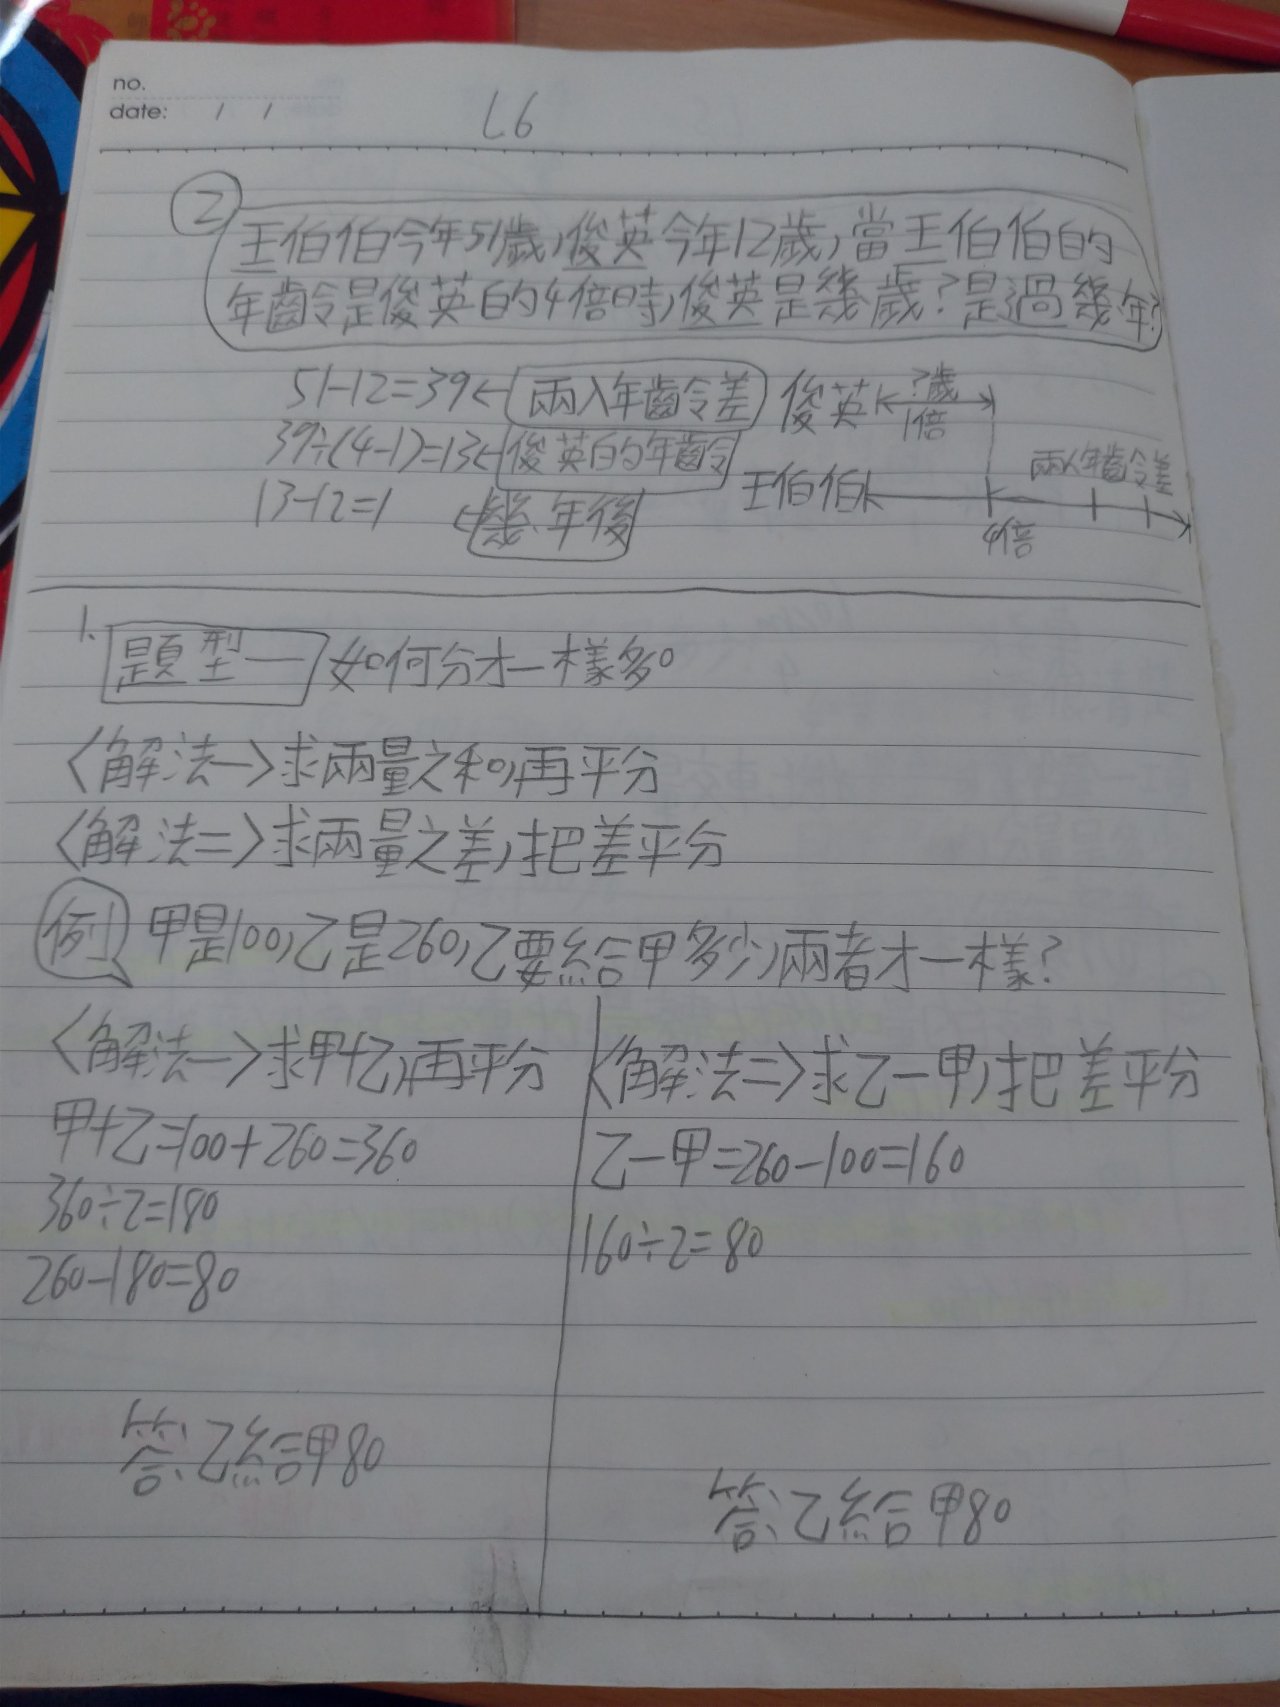 no.
date: / /
L6
② 王伯伯今年51歲,俊英今年12歲,當王伯伯的
年齡是俊英的4倍時,俊英是幾歲?是過幾年?
51-12=39← 兩人年齡差
39÷(4-1)=13← 俊英的年齡
13-12=1 ← 幾年後
俊英 ?歲
1倍
兩人年齡差
王伯伯
4倍
1. 題型一 如何分才一樣多。
〈解法一〉求兩量之和,再平分
〈解法二〉求兩量之差,把差平分
例 甲是100,乙是260,乙要給甲多少,兩者才一樣?
〈解法一〉求甲+乙,再平分
甲+乙=100+260=360
360÷2=180
260-180=80
答:乙給甲80
〈解法二〉求乙-甲,把差平分
乙-甲=260-100=160
160÷2=80
答:乙給甲80